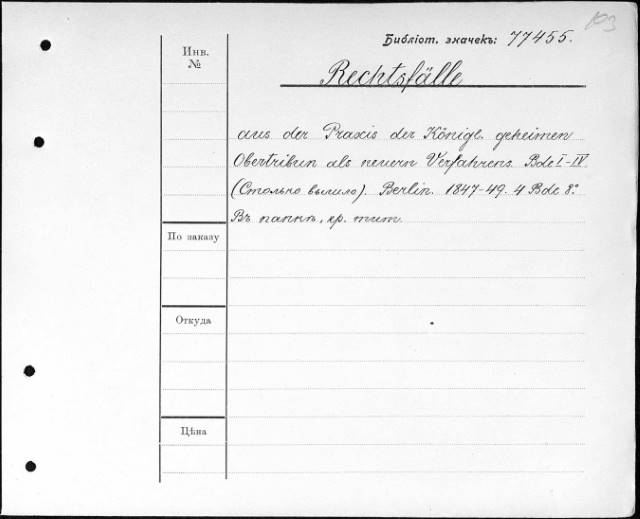 103
Библіот. значекъ: 77455.
Инв.
№
Rechtsfälle
aus der Praxis der Königl. geheimen
Obertribun als neuern Verfahrens. Bde I-IV
(Столько вышло). Berlin. 1847-49. 4 Bde 8º
Въ папкѣ, кр. тит.
По заказу
Откуда
Цѣна